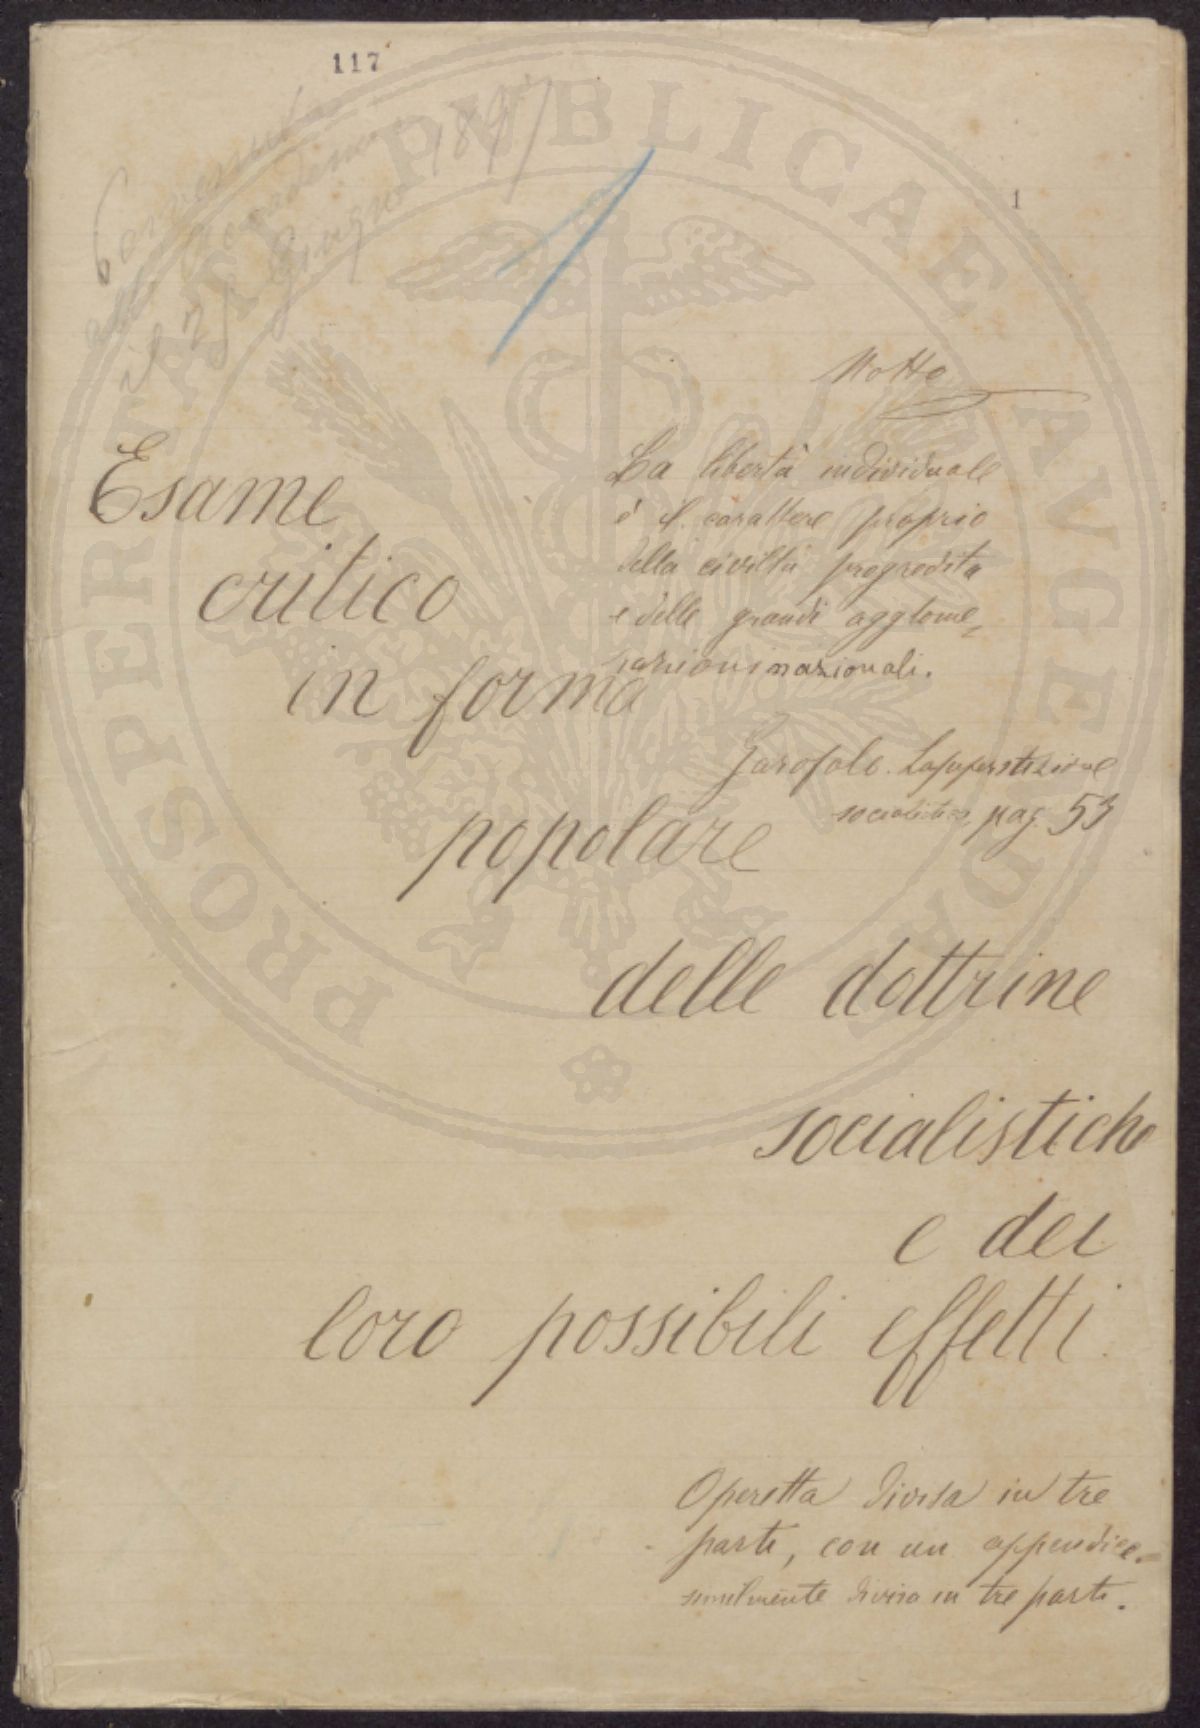 117
Pervenuta
all' Accademia
il 25 Giugno 1897
1
1
Motto
La libertà individuale
è il carattere proprio
della civiltà progredita
e delle grandi agglome-
razioni nazionali.
Garofalo. La superstizione
socialista, pag. 53
Esame
critico
in forma
popolare
delle dottrine
socialistiche
e dei
loro possibili effetti.
Operetta divisa in tre
parti, con un appendice
similmente divisa in tre parti.
PROSPERITATI PVBLICAE AVGENDAE